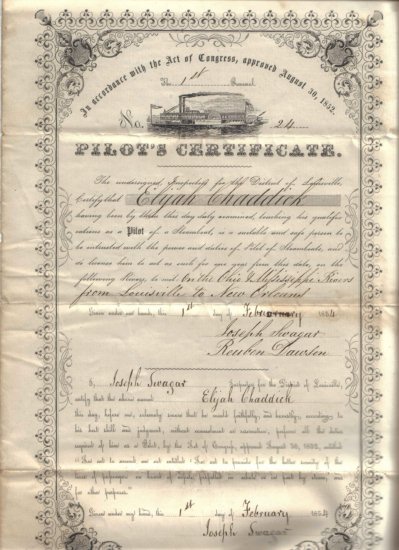 In accordance with the Act of Congress, approved August 30, 1852.
The 1st Renewal
No. 24
PILOT'S CERTIFICATE.
The undersigned, Inspectors for the District of Louisville,
Certify that Elijah Chaddick
having been by them this day duly examined, touching his qualifi-
cations as a Pilot of a Steamboat, is a suitable and safe person to
be intrusted with the power and duties of Pilot of Steamboats, and
do license him to act as such for one year from this date, on the
following Rivers, to wit: On the Ohio & Mississippi Rivers
from Louisville to New Orleans
Given under our hands, this 1st day of February 1854
Joseph Swagar
Reuben Dawson
I, Joseph Swagar Inspector for the District of Louisville,
certify that the above named Elijah Chaddick
this day, before me, solemnly swore that he would faithfully, and honestly, according to
his best skill and judgment, without concealment or reservation, perform all the duties
required of him as a Pilot, by the Act of Congress, approved August 30, 1852, entitled
"An act to amend an act entitled 'An act to provide for the better security of the
lives of passengers on board of vessels propelled in whole or in part by steam, and
for other purposes."
Given under my hand, this 1st day of February 1854
Joseph Swagar